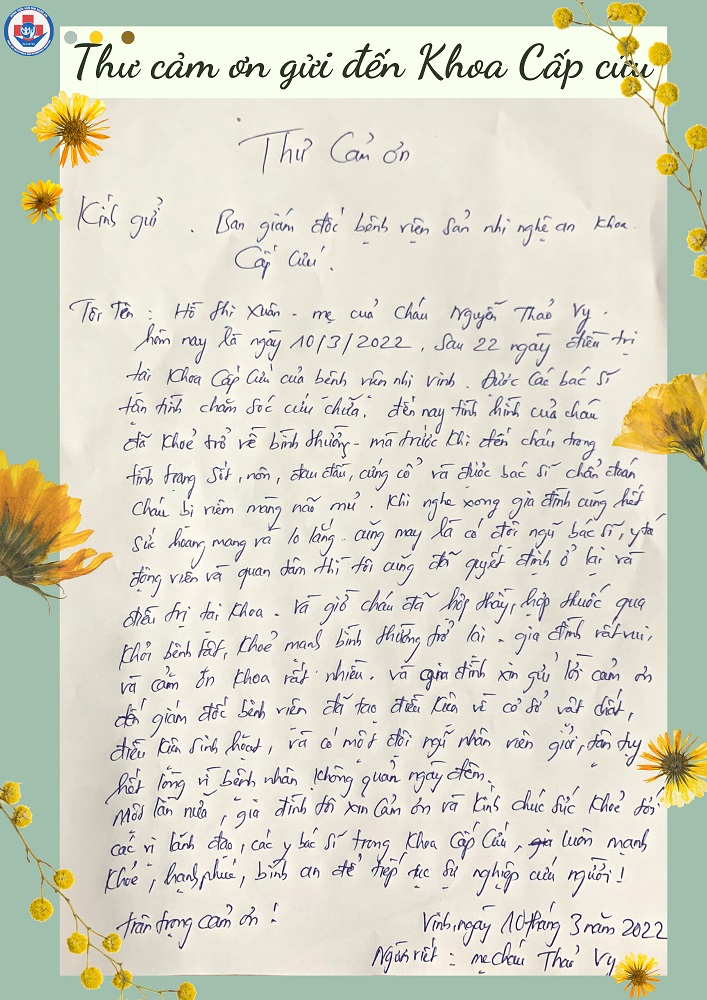 Thư cảm ơn gửi đến Khoa Cấp cứu
Thư Cảm ơn
Kính gửi . Ban giám đốc bệnh viện sản nhi nghệ an khoa
Cấp Cứu.
Tôi Tên : Hồ Thị Xuân - mẹ của cháu Nguyễn Thảo Vy.
hôm nay là ngày 10/3/2022. Sau 22 ngày điều trị
tại Khoa Cấp Cứu của bệnh viện nhi vinh. Được các bác sĩ
tận tình chăm sóc cứu chữa, đến nay tình hình của cháu
đã khoẻ trở về bình thường - mà trước khi đến cháu trong
tình trạng sốt, nôn, đau đầu, cứng cổ và được bác sĩ chẩn đoán
cháu bị viêm màng não mủ. Khi nghe xong gia đình cũng hết
sức hoang mang và lo lắng. cũng may là có đội ngũ bác sĩ, y tá
động viên và quan tâm thì tôi cũng đã quyết định ở lại và
điều trị tại khoa. Và giờ cháu đã hợp thầy, hợp thuốc qua
khỏi bệnh tật, khoẻ mạnh bình thường trở lại - gia đình rất vui,
và cảm ơn khoa rất nhiều. và gia đình xin gửi lời cảm ơn
đến giám đốc bệnh viện đã tạo điều kiện về cơ sở vật chất,
điều kiện sinh hoạt, và có một đội ngũ nhân viên giỏi, tận tuỵ
hết lòng vì bệnh nhân không quản ngày đêm.
Một lần nữa, gia đình tôi xin cảm ơn và kính chúc sức khoẻ tới
các vị lãnh đạo, các y bác sĩ trong Khoa Cấp Cứu, luôn mạnh
khoẻ, hạnh phúc, bình an để tiếp tục sự nghiệp cứu người!
trân trọng cảm ơn!
Vinh, ngày 10 tháng 3 năm 2022
Người viết : mẹ cháu Thảo Vy